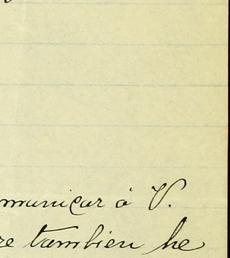 municar á V.
re tambien he